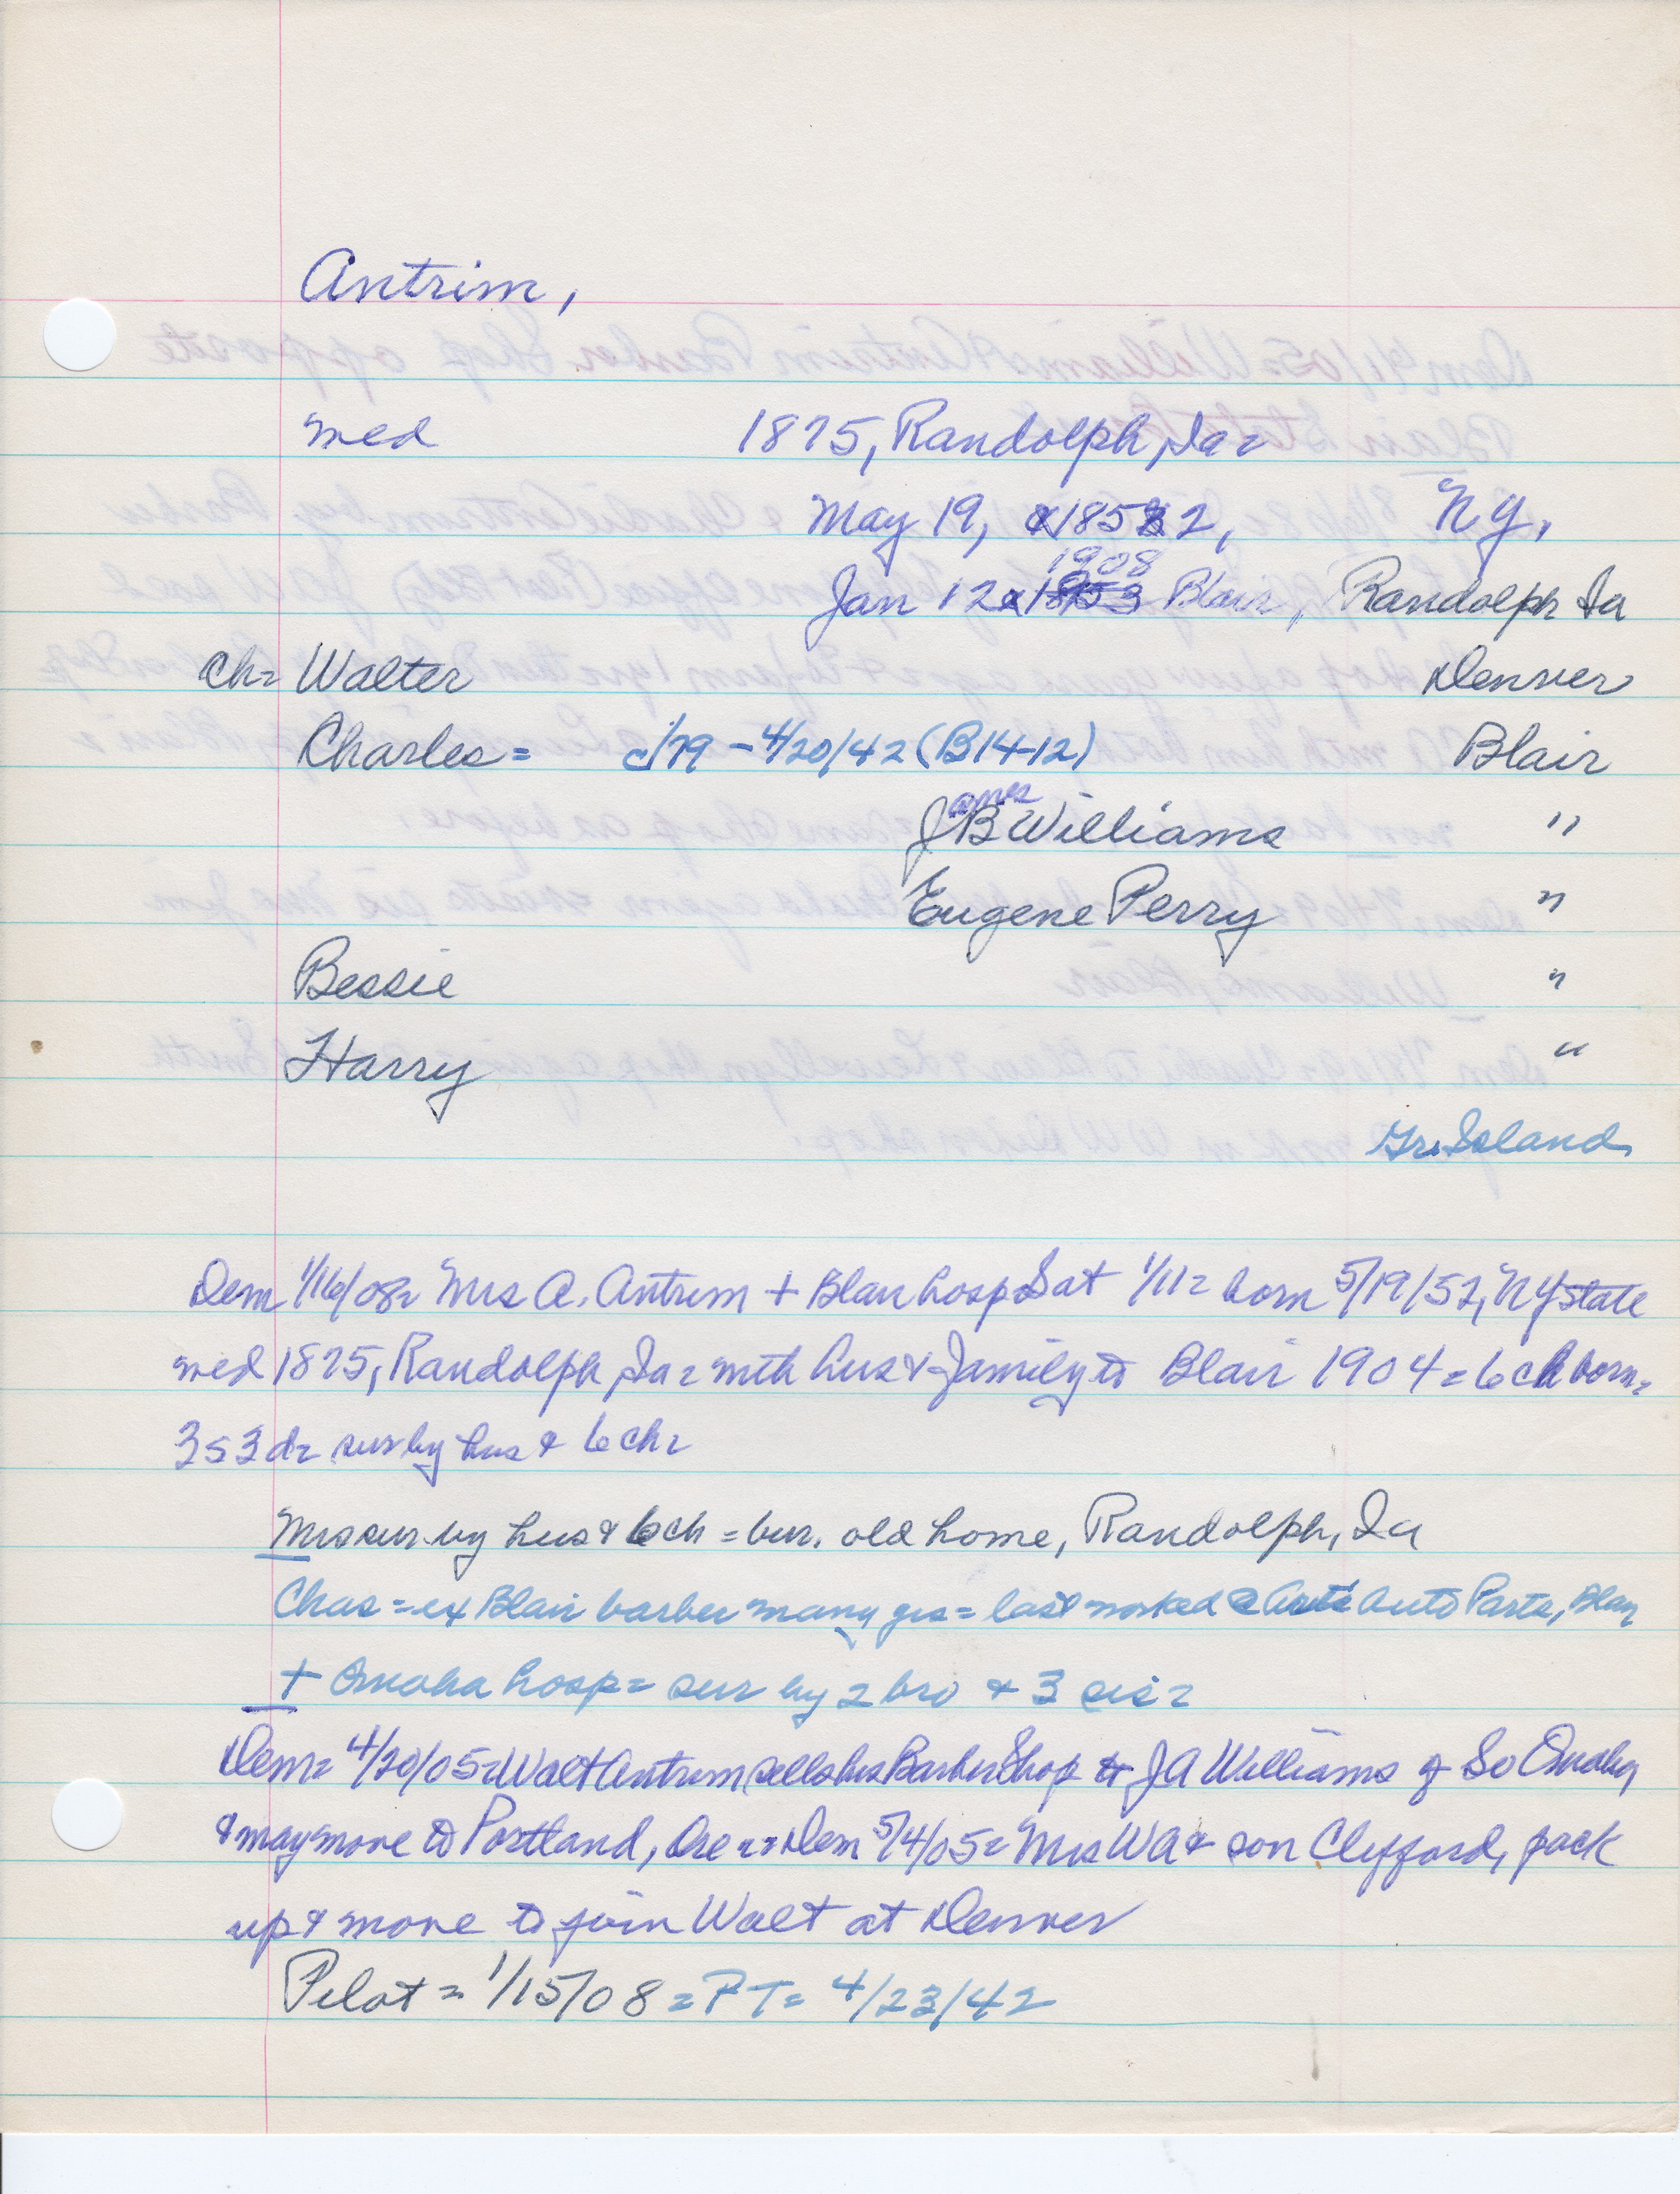 Antrim,
med 1875, Randolph, Ia =
May 19, 1852, NY,
1908
Jan 12 x 1853 Blair, Randolph Ia
Ch= Walter Denver
Charles = c/79 - 4/20/42 (B14-12) Blair
James B Williams "
Eugene Perry "
Bessie "
Harry "
Gr. Island
Dem 1/16/08= Mrs A. Antrim + Blair hosp Sat 1/11 = born 5/19/52, NY state
med 1875, Randolph, Ia = with hus & family to Blair 1904 = 6 ch born=
3s 3d= sur by hus & 6 ch=
Mrs sur by hus & 6 ch = bur. old home, Randolph, Ia
Chas = ex Blair barber many yrs = last worked @ Auto Parts, Blair
+ Omaha hosp = sur by 2 bro & 3 sis =
Dem= 4/20/05= Walt Antrim sells his Barber Shop to JA Williams of So Omaha
& may move to Portland, Ore == Dem 5/4/05= Mrs WA & son Clifford, pack
up & move to join Walt at Denver
Pilot = 1/15/08 = PT= 4/23/42